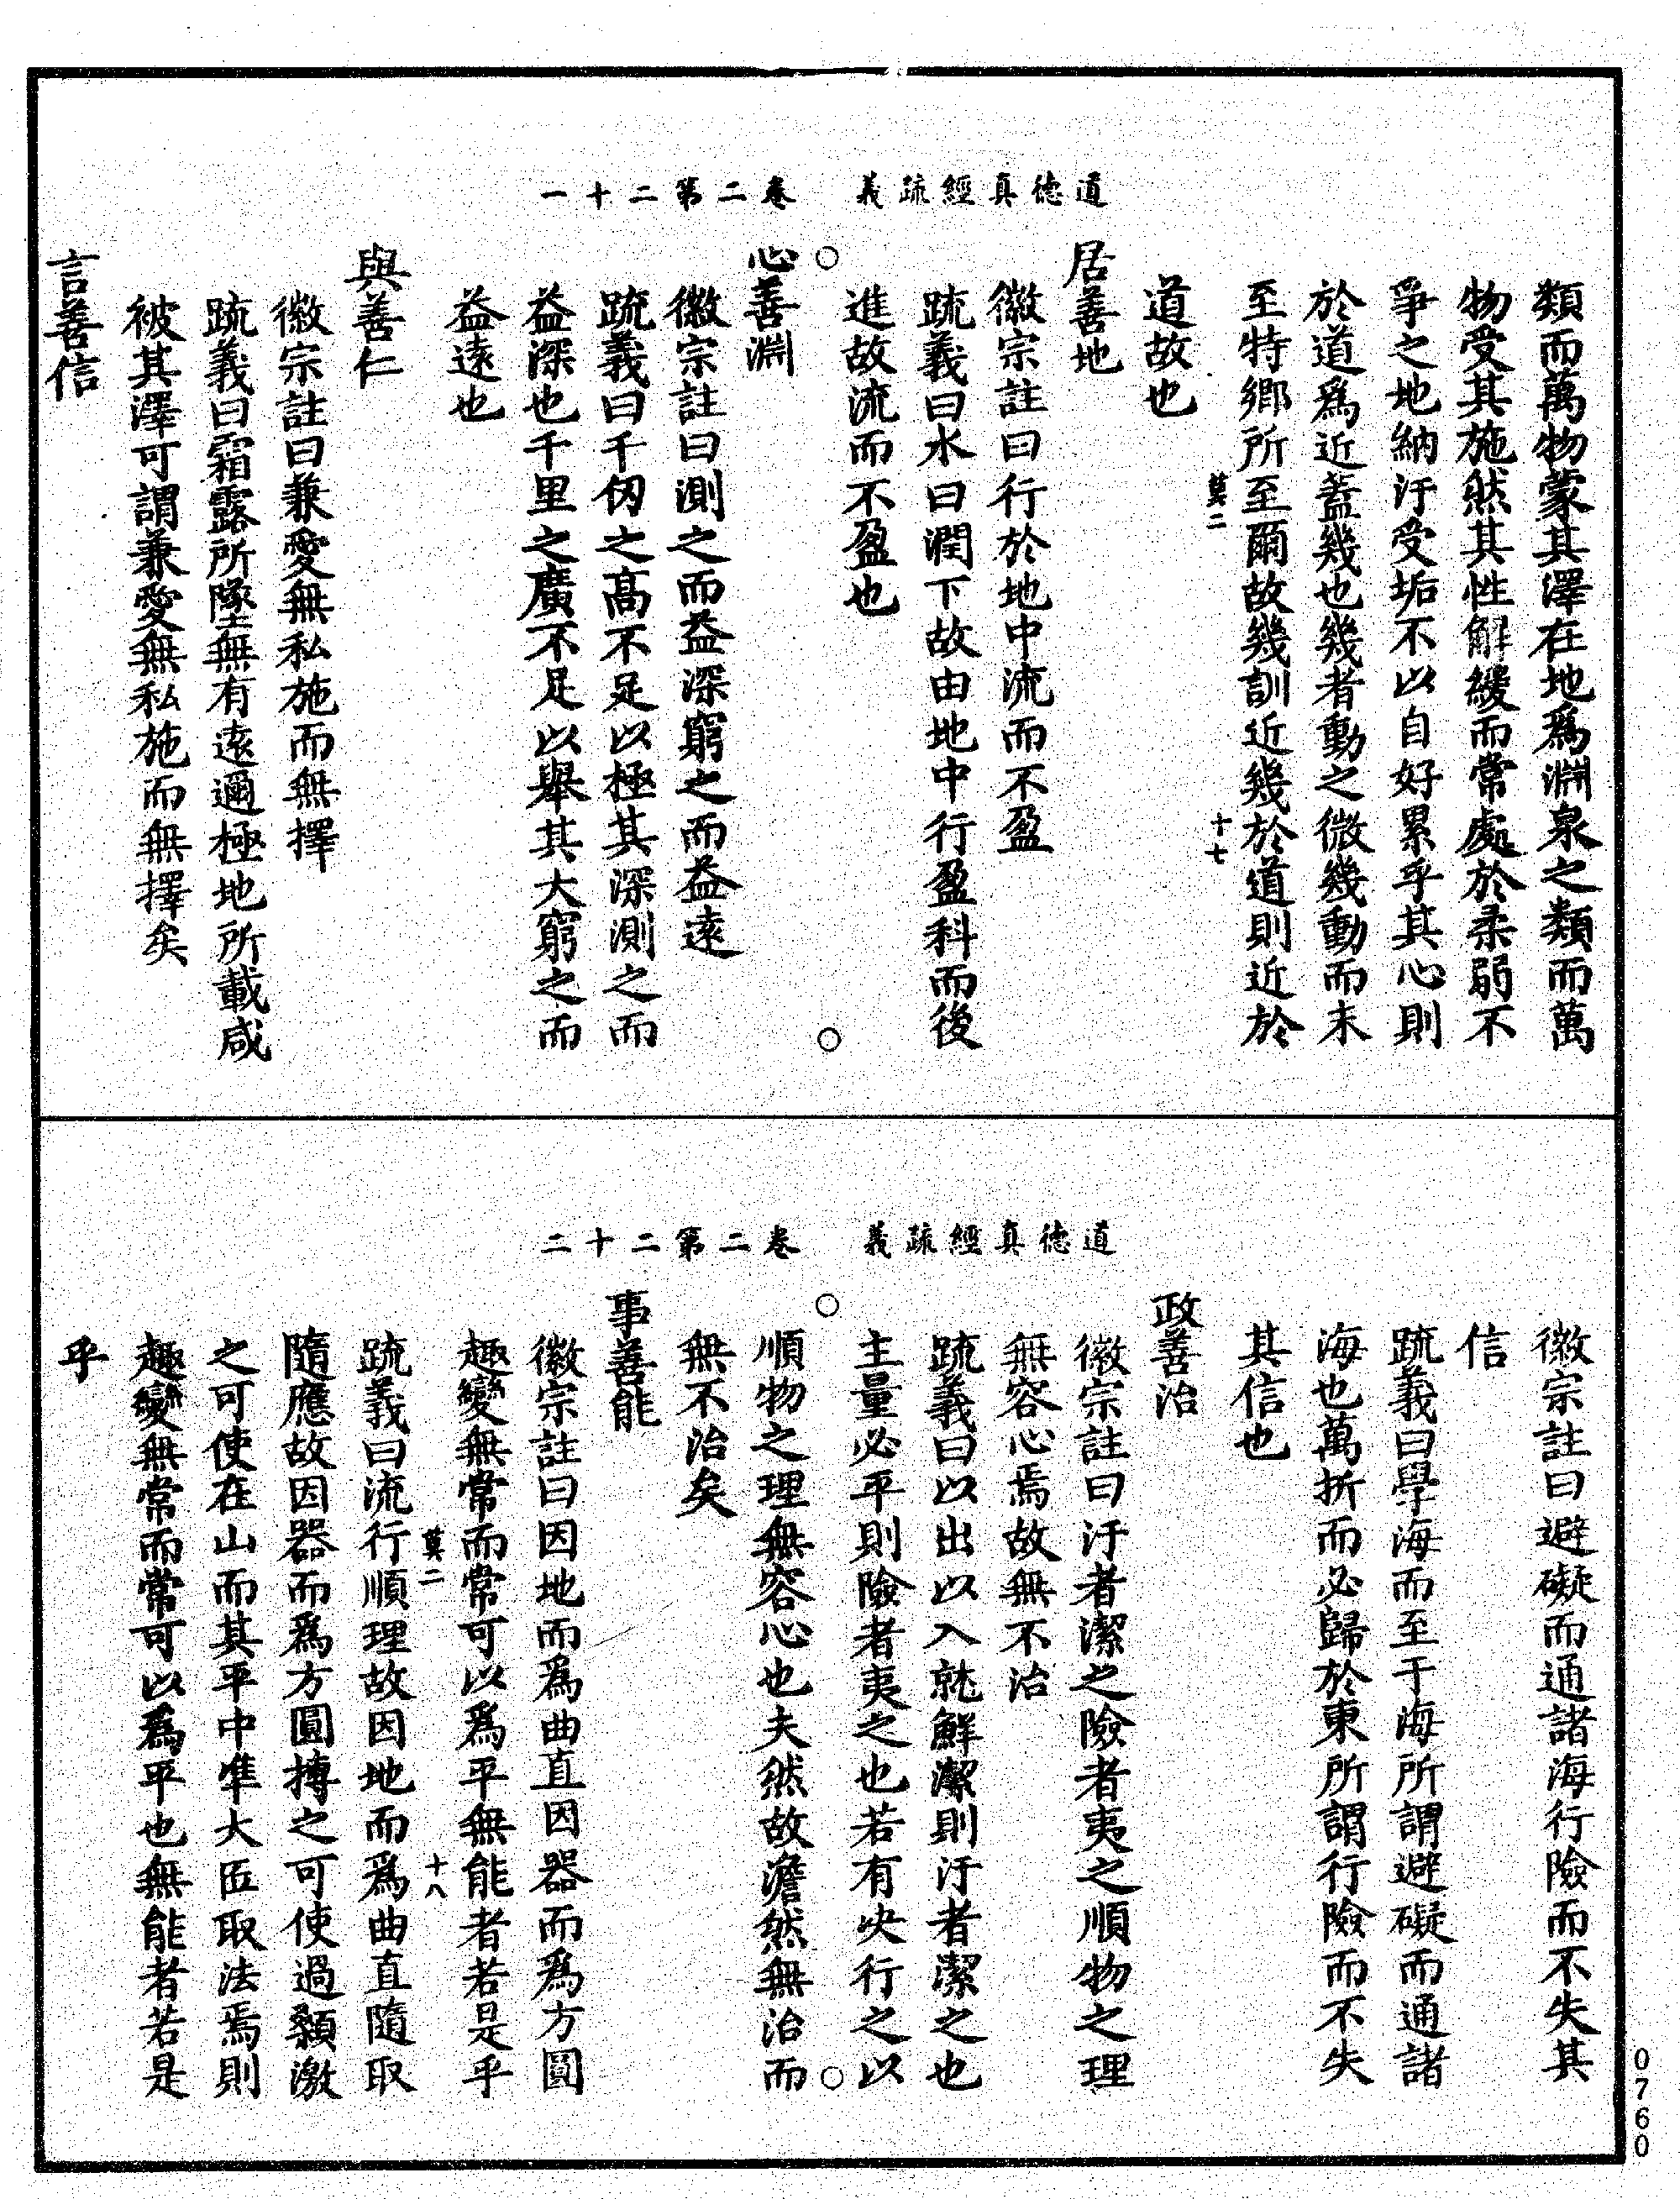 道德真經疏義　卷二第二十一
類而萬物蒙其澤在地爲淵泉之類而萬
物受其施然其性解緩而常處於柔弱不
爭之地納汙受垢不以自好累乎其心則
於道爲近蓋幾也幾者動之微幾動而未
至特鄉所至爾故幾訓近幾於道則近於
莫二　十七
道故也
居善地
徽宗註曰行於地中流而不盈
疏義曰水曰潤下故由地中行盈科而後
進故流而不盈也
○　○
心善淵
徽宗註曰測之而益深窮之而益遠
疏義曰千仞之高不足以極其深測之而
益深也千里之廣不足以舉其大窮之而
益遠也
與善仁
徽宗註曰兼愛無私施而無擇
疏義曰霜露所墜無有遠邇極地所載咸
被其澤可謂兼愛無私施而無擇矣
言善信
道德真經疏義　卷二第二十二
徽宗註曰避礙而通諸海行險而不失其
信
疏義曰學海而至于海所謂避礙而通諸
海也萬折而必歸於東所謂行險而不失
其信也
政善治
徽宗註曰汙者潔之險者夷之順物之理
無容心焉故無不治
疏義曰以出以入就鮮潔則汙者潔之也
主量必平則險者夷之也若有決行之以
○　○
順物之理無容心也夫然故澹然無治而
無不治矣
事善能
徽宗註曰因地而爲曲直因器而爲方圓
趣變無常而常可以爲平無能者若是乎
莫二　十八
疏義曰流行順理故因地而爲曲直隨取
隨應故因器而爲方圓搏之可使過顙激
之可使在山而其平中準大匠取法焉則
趣變無常而常可以爲平也無能者若是
乎
0760